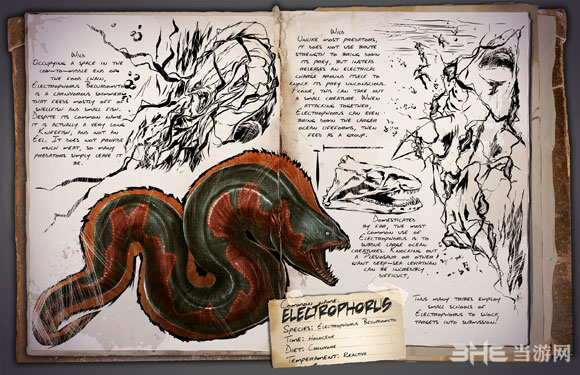 Wild
Occupying a space in the
low-to-middle end of
the food chain,
Electrophorus Beluadomito
is a carnivorous swimmer
that feeds mostly off of
shellfish and small fish.
Despite its common name,
it is actually a very long
Knifefish, and not an
Eel. It does not provide
much meat, so many
predators simply leave it
be.
Wild
Unlike most predators,
it does not use brute
strength to bring down
its prey, but instead
releases an electrical
charge around itself to
knock its prey unconscious.
Alone, this can take out
a small creature. When
attacking together,
Electrophorus can even
bring down the larger
ocean lifeforms, then
feed as a group.
Domesticated
By far, the most
common use of
Electrophorus is to
subdue large ocean
creatures. Knocking out
a Plesiosaur or other
giant deep-sea leviathan
can be incredibly
difficult,
thus many tribes employ
small schools of
Electrophorus to shock
targets into submission.
Common Name
Electrophorus
Species: Electrophorus Beluadomito
Time: Holocene
Diet: Carnivore
Temperament: Reactive
3HE 当游网